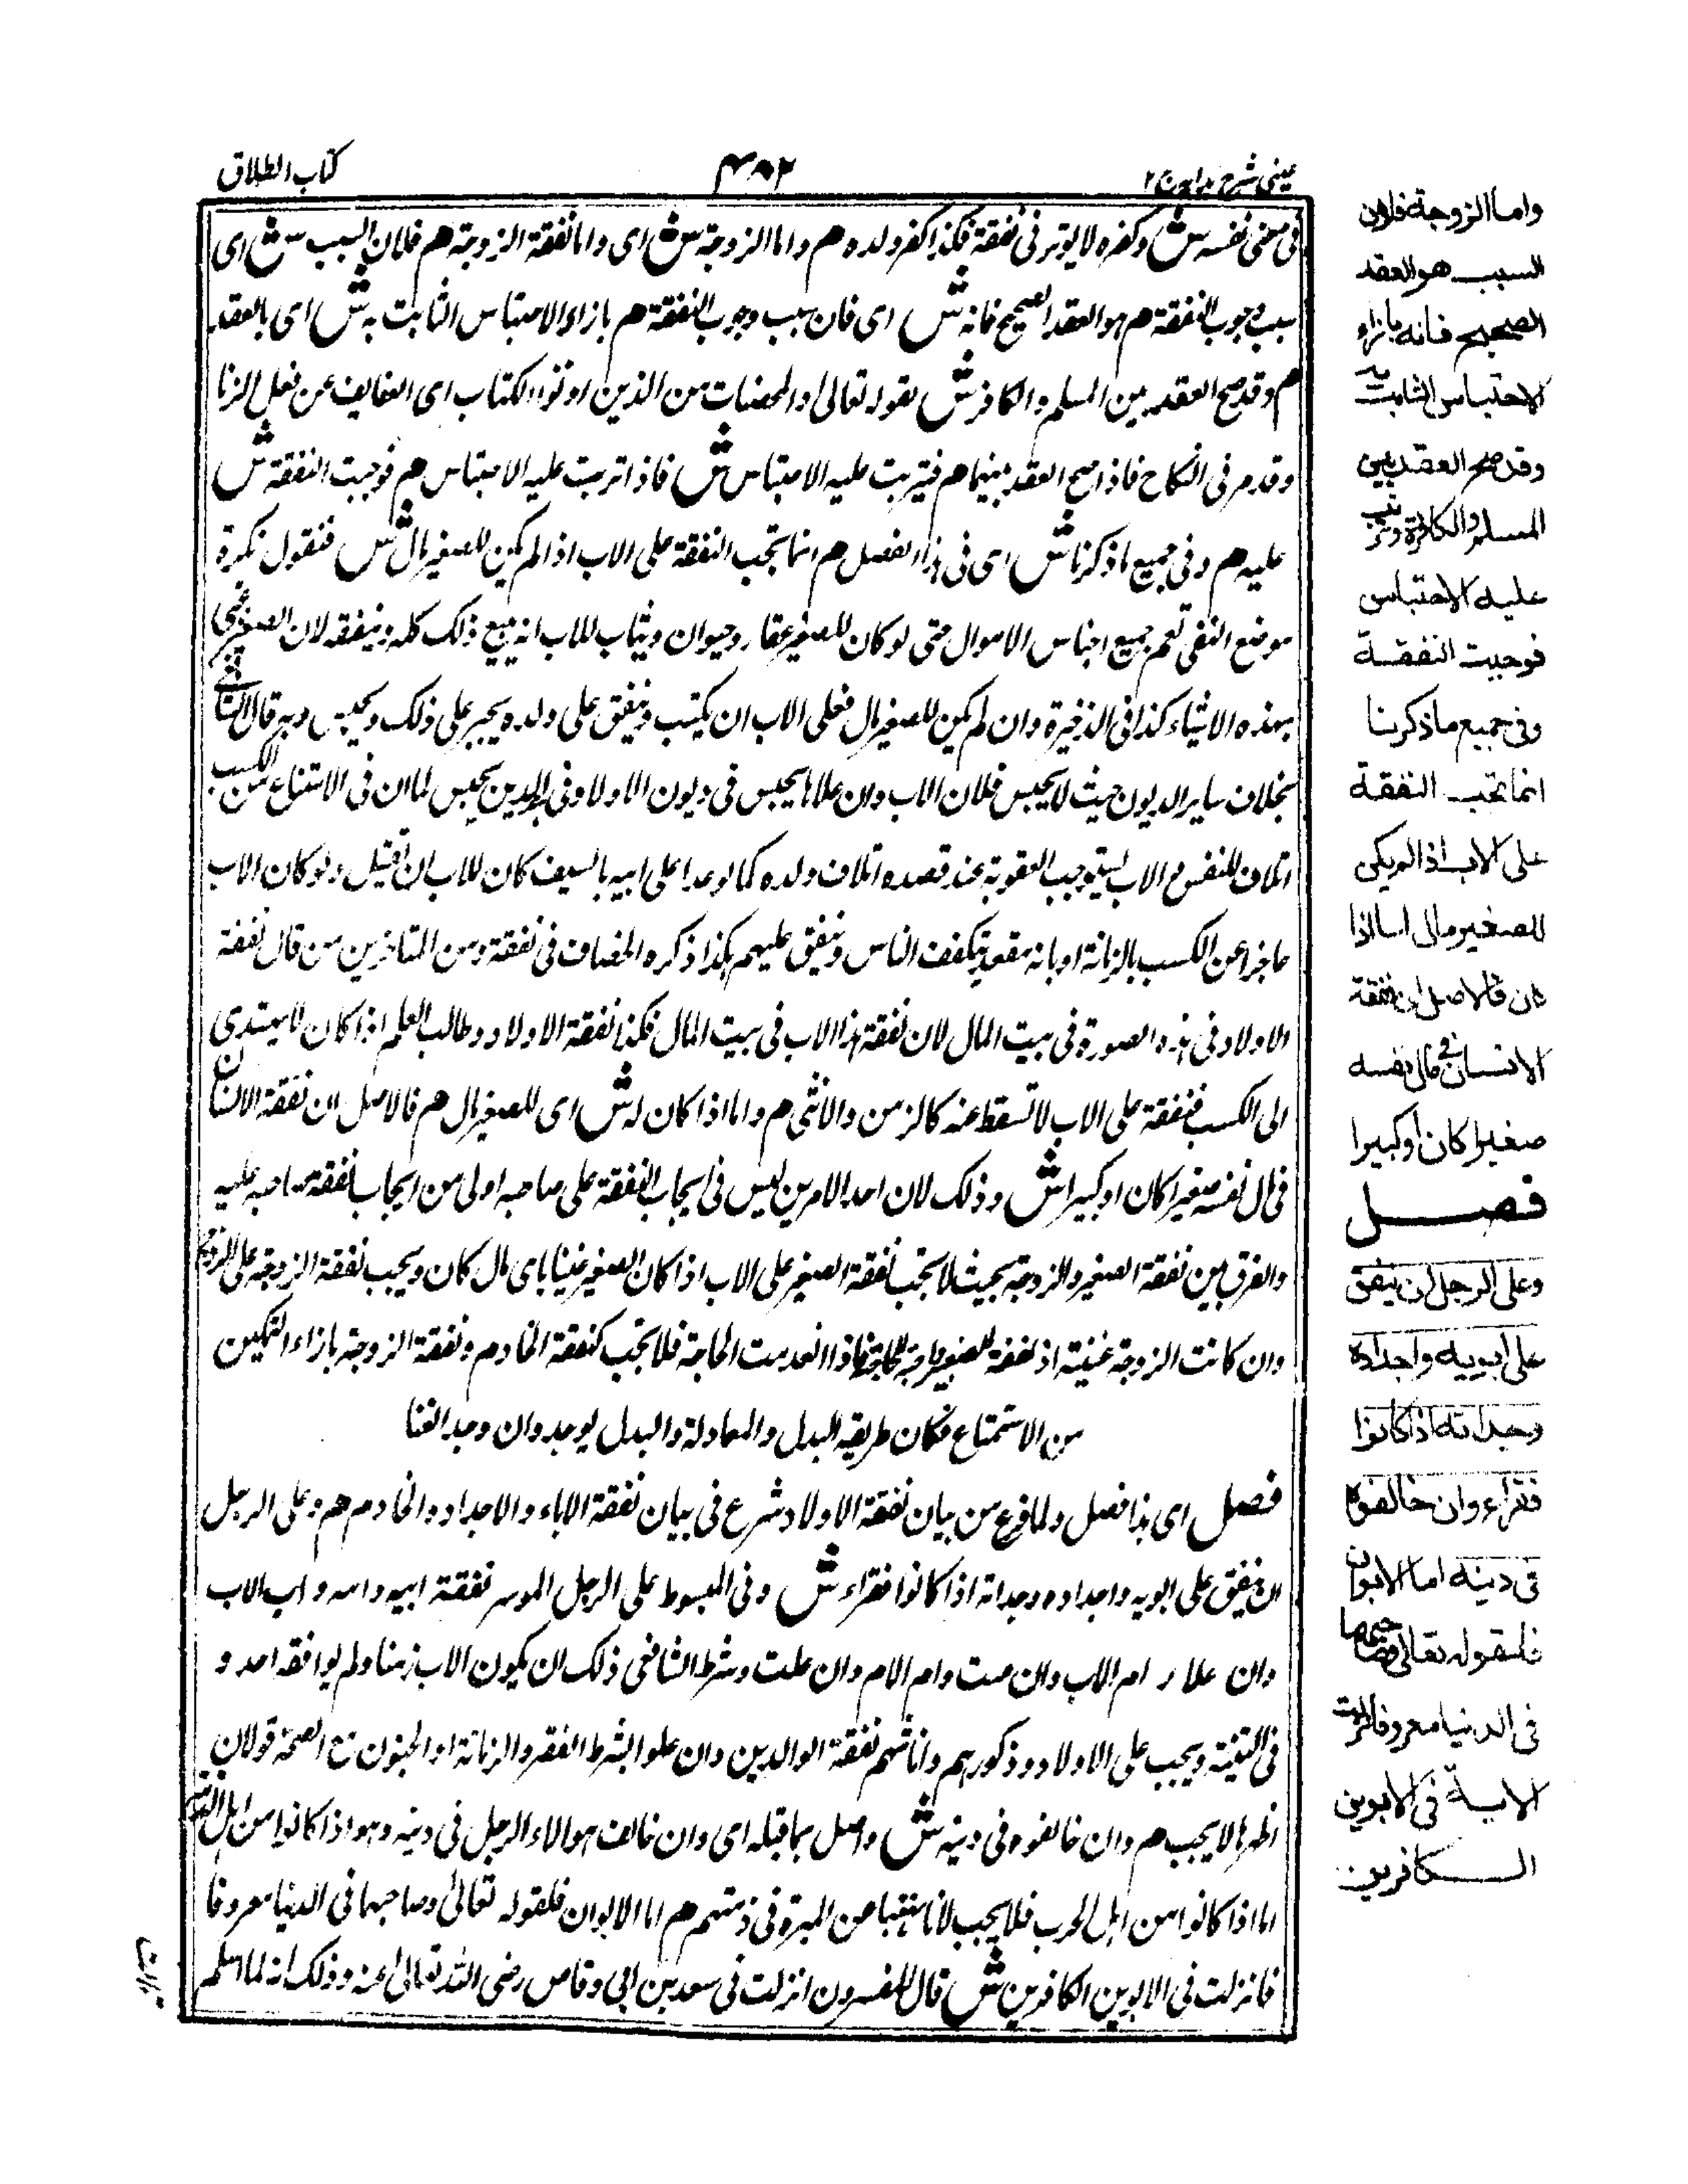 عینی شرح ہدایہ ج ۲
۴۸۲
کتاب الطلاق
فی معنی نفسه ش وکفره لا یوثر فی نفقة فکذا کفر ولده هم واما الزوجة ش ای واما نفقة الزوجة هم فلان السبب ش ای
سبب وجوب النفقة هم هو العقد الصحیح فانه ش ای فان سبب وجوب النفقة هم بازاء الاحتباس الثابت به ش ای بالعقد
هم وقد صح العقد بین المسلم والکافر ش لقوله تعالی والمحصنات من الذین اوتوا الکتاب ای العفایف عن فعل الزنا
وقد مر فی النکاح فاذا صح العقد بینهما هم فیترتب علیه الاحتباس ش فاذا ترتب علیه الاحتباس هم فوجبت النفقة ش
علیه هم وفی جمیع ما ذکرنا ش ای فی هذا الفصل هم انما تجب النفقة علی الاب اذا لم یکن للصغیر مال ش فنقول نکرة
موضع النفی تعم جمیع اجناس الاموال حتی لو کان للصغیر عقار وحیوان وثیاب للاب انه یبیع ذلک کله وینفقه لان الصغیر غنی
بهذه الاشیاء کذا فی الذخیرة وان لم یکن للصغیر مال فعلی الاب ان یکتسب وینفق علی ولده یجبر علی ذلک ویحبس وبه قال الشافعی
بخلاف سایر الدیون حیث لا یحبس فلان الاب وان علا لا یحبس فی دیون الاولاد وفی الدین یحبس لما ان فی الامتناع من الکسب
اتلاف للنفس والاب یستوجب العقوبة عند قصده اتلاف ولده کما لو عدا علی ابیه بالسیف کان للاب ان یقتل ولو کان الاب
عاجزا عن الکسب بالزمانة او بانه مقعد یتکفف الناس وینفق علیهم هکذا ذکره الخصاف فی نفقة ومن المتاخرین من قال نفقة
الاولاد فی هذه الصورة فی بیت المال لان نفقة هذا الاب فی بیت المال فکذا نفقة الاولاد وطالب العلم اذا کان لا یهتدی
الی الکسب فنفقة علی الاب لا تسقط عنه کالزمن والانثی هم واما اذا کان له ش ای للصغیر مال هم فالاصل ان نفقة الانسان
فی مال نفسه صغیرا کان او کبیرا ش وذلک لان احد الامرین لیس فی ایجاب النفقة علی صاحبه اولی من ایجاب نفقة صاحبه علیه
والفرق بین نفقة الصغیر والزوجة بحیث لا تجب نفقة الصغیر علی الاب اذا کان الصغیر غنیا بای مال کان ویجب نفقة الزوجة علی الزوج
وان کانت الزوجة غنیة اذ نفقة الصغیر للحاجة فاذا انعدمت الحاجة فلا یجب کنفقة الخادم ونفقة الزوجة بازاء التمکین
من الاستمتاع فکان طریقه البدل والمعادلة والبدل یوجد وان وجد الغنا
فصل ای هذا فصل ولما فرغ من بیان نفقة الاولاد شرع فی بیان نفقة الاباء والاجداد والخادم هم وعلی الرجل
ان ینفق علی ابویه واجداده وجداته اذا کانوا فقراء ش وفی المبسوط علی الرجل الموسر نفقة ابیه وامه واب الاب
وان علا و ام الاب وان علت وام الام وان علت وشرط الشافعی ذلک ان یکون الاب زمنا ولم یوافقه احد و
فی التغنیة ویجب علی الاولاد ذکورهم واناثهم نفقة الوالدین وان علو بشرط الفقر والزمانة او الجنون مع الصحة قولان
اظهرها لا یجب هم وان خالفوه فی دینه ش واصل بما قبله ای وان خالف هوالاء الرجل فی دینه وهو اذا کانوا من اهل الذمة
اما اذا کانوا من اهل الحرب فلا یجب لانا نهینا من المبرة فی ذمتهم هم اما الابوان فلقوله تعالی وصاحبهما فی الدنیا معروفا
فانزلت فی الابوین الکافرین ش قال المفسرون انزلت فی سعد بن ابی وقاص رضی الله تعالی عنه وذلک انه لما اسلم
واما الزوجة فلان
السبب هو العقد
الصحیح فانه بازاء
الاحتباس الثابت به
وقد صح العقد بین
المسلم والکافرة وترتب
علیه الاحتباس
فوجبت النفقة
وفی جمیع ما ذکرنا
انما تجب النفقة
علی الاب اذا لم یکن
للصغیر مال اما اذا
کان فالاصل ان نفقة
الانسان فی مال نفسه
صغیرا کان او کبیرا
فصل
وعلی الرجل ان ینفق
علی ابویه واجداده
وجداته اذا کانوا
فقراء وان خالفوه
فی دینه اما الابوان
فلقوله تعالی وصاحبهما
فی الدنیا معروفا نزلت
الایة فی الابوین
الکافرین